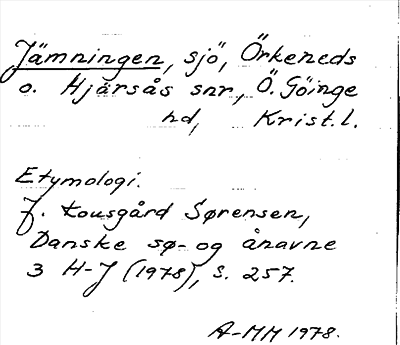 Jämningen, sjö, Örkeneds
o. Hjärsås snr, Ö. Göinge
hd, Krist. l.
Etymologi.
J. Kousgård Sørensen,
Danske sø- og ånavne
3 H-J (1978), s. 257.
A-MM 1978.